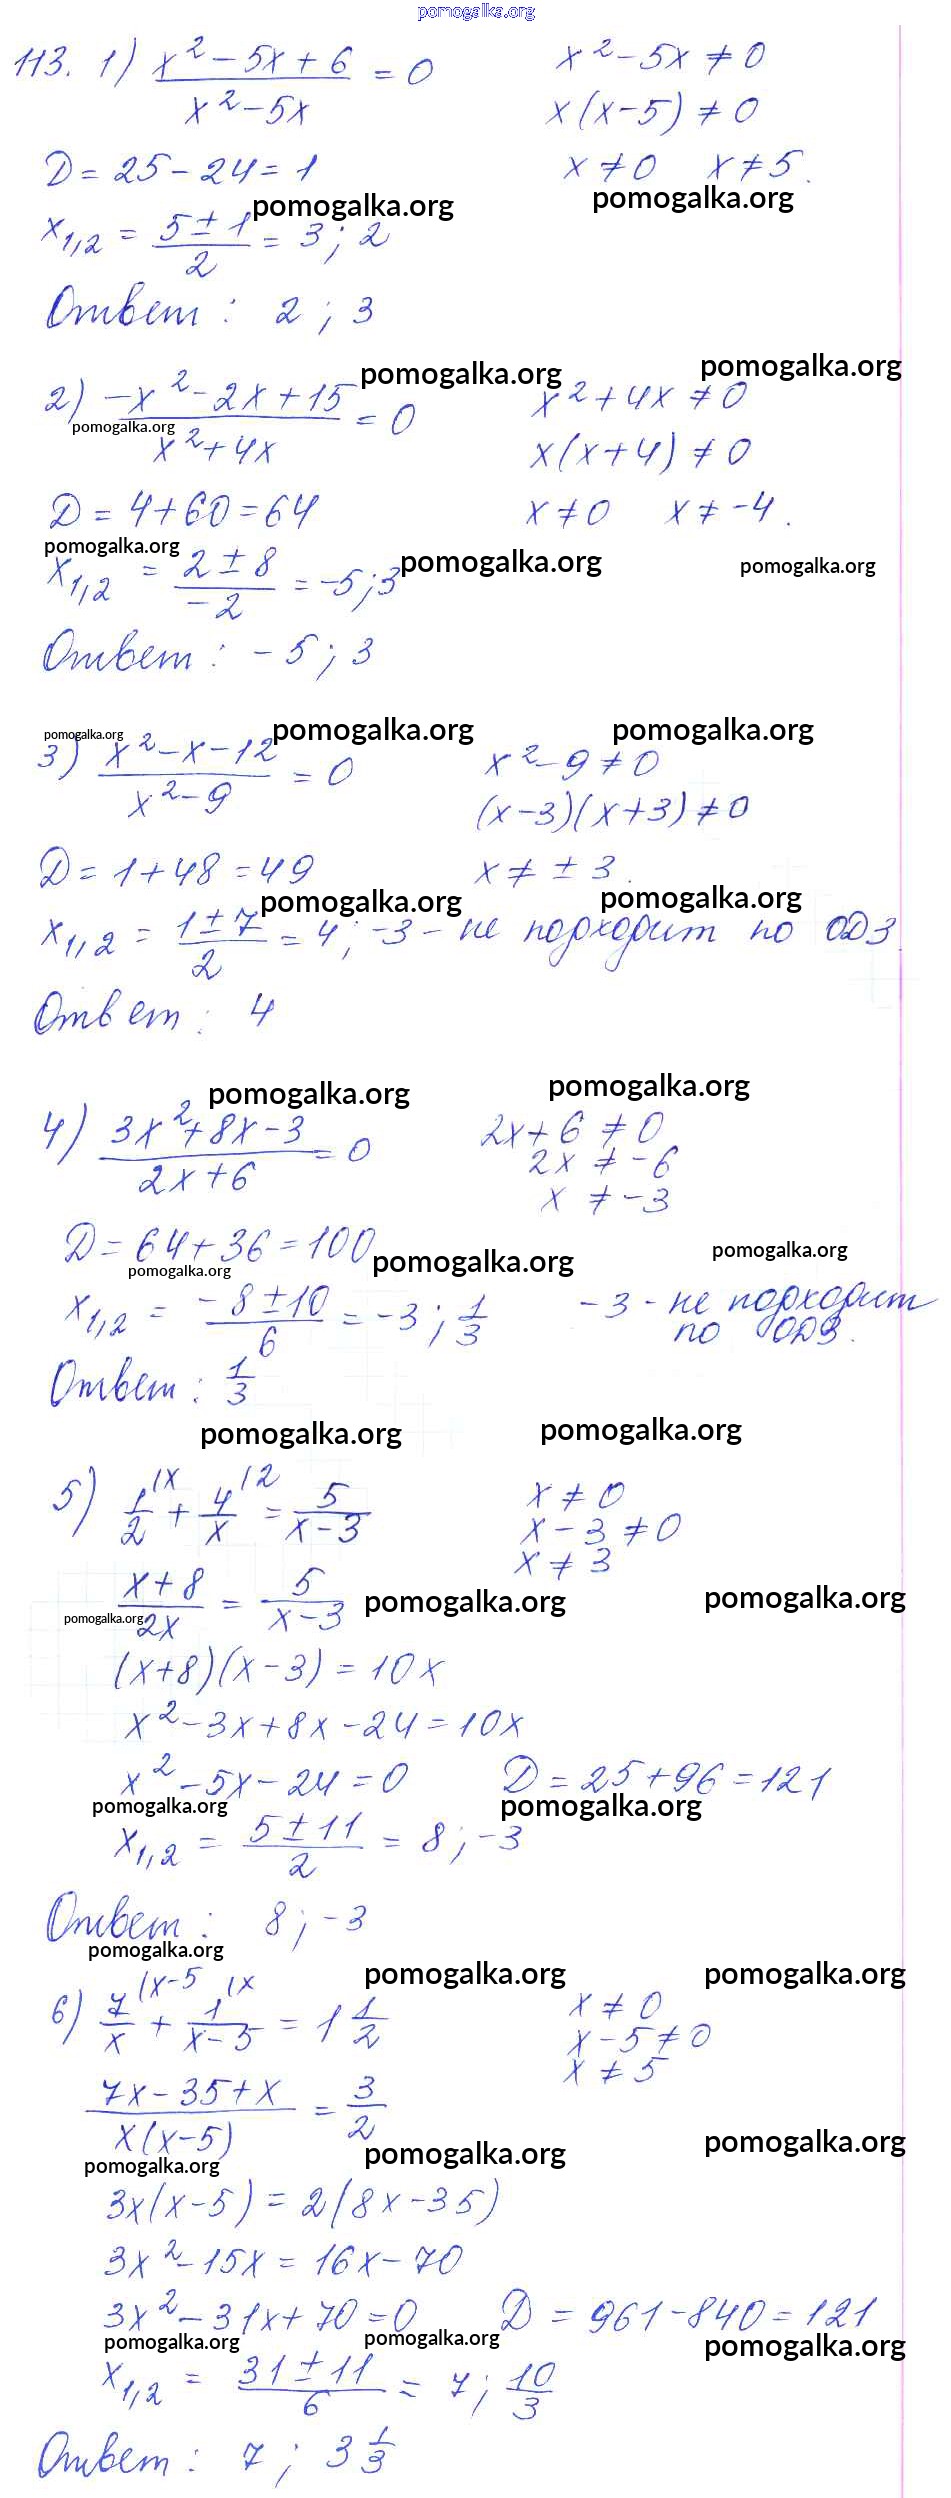 pomogalka.org
113. 1) (x² - 5x + 6)/(x² - 5x) = 0    x² - 5x ≠ 0
x(x-5) ≠ 0
D = 25 - 24 = 1    x ≠ 0  x ≠ 5.
pomogalka.org    pomogalka.org
x₁,₂ = (5 ± 1)/2 = 3; 2
Ответ: 2; 3
pomogalka.org    pomogalka.org
2) (-x² - 2x + 15)/(x² + 4x) = 0    x² + 4x ≠ 0
pomogalka.org
x(x+4) ≠ 0
D = 4 + 60 = 64    x ≠ 0  x ≠ -4.
pomogalka.org    pomogalka.org    pomogalka.org
x₁,₂ = (2 ± 8)/(-2) = -5; 3
Ответ: -5; 3
pomogalka.org    pomogalka.org    pomogalka.org
3) (x² - x - 12)/(x² - 9) = 0    x² - 9 ≠ 0
(x-3)(x+3) ≠ 0
D = 1 + 48 = 49    x ≠ ± 3.
pomogalka.org    pomogalka.org
x₁,₂ = (1 ± 7)/2 = 4; -3 - не подходит по ОДЗ
Ответ: 4
pomogalka.org    pomogalka.org
4) (3x² + 8x - 3)/(2x + 6) = 0    2x + 6 ≠ 0
2x ≠ -6
x ≠ -3
D = 64 + 36 = 100
pomogalka.org    pomogalka.org    pomogalka.org
x₁,₂ = (-8 ± 10)/6 = -3; 1/3    -3 - не подходит
по ОДЗ.
Ответ: 1/3
pomogalka.org    pomogalka.org
5) 1/2 |x + 4/x |2 = 5/(x-3)    x ≠ 0
x - 3 ≠ 0
x ≠ 3
(x+8)/2x = 5/(x-3)
pomogalka.org    pomogalka.org    pomogalka.org
(x+8)(x-3) = 10x
x² - 3x + 8x - 24 = 10x
x² - 5x - 24 = 0    D = 25 + 96 = 121
pomogalka.org    pomogalka.org
x₁,₂ = (5 ± 11)/2 = 8; -3
Ответ: 8; -3
pomogalka.org    pomogalka.org    pomogalka.org
6) 7/x |x-5 + 1/(x-5) |x = 1 1/2    x ≠ 0
x - 5 ≠ 0
x ≠ 5
(7x - 35 + x)/(x(x-5)) = 3/2
pomogalka.org    pomogalka.org    pomogalka.org
3x(x-5) = 2(8x-35)
3x² - 15x = 16x - 70
3x² - 31x + 70 = 0    D = 961 - 840 = 121
pomogalka.org    pomogalka.org    pomogalka.org
x₁,₂ = (31 ± 11)/6 = 7; 10/3
Ответ: 7; 3 1/3